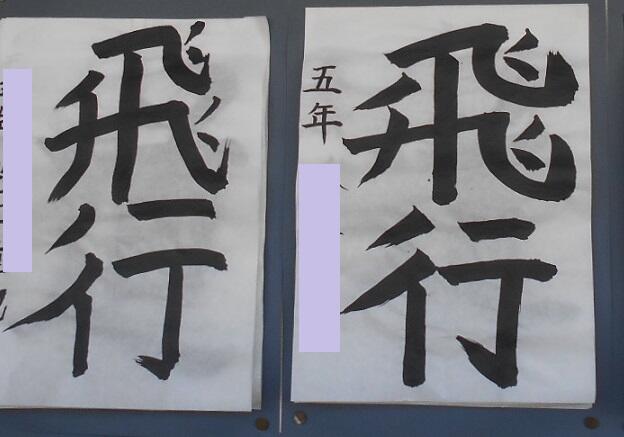 飛行
五年
飛行